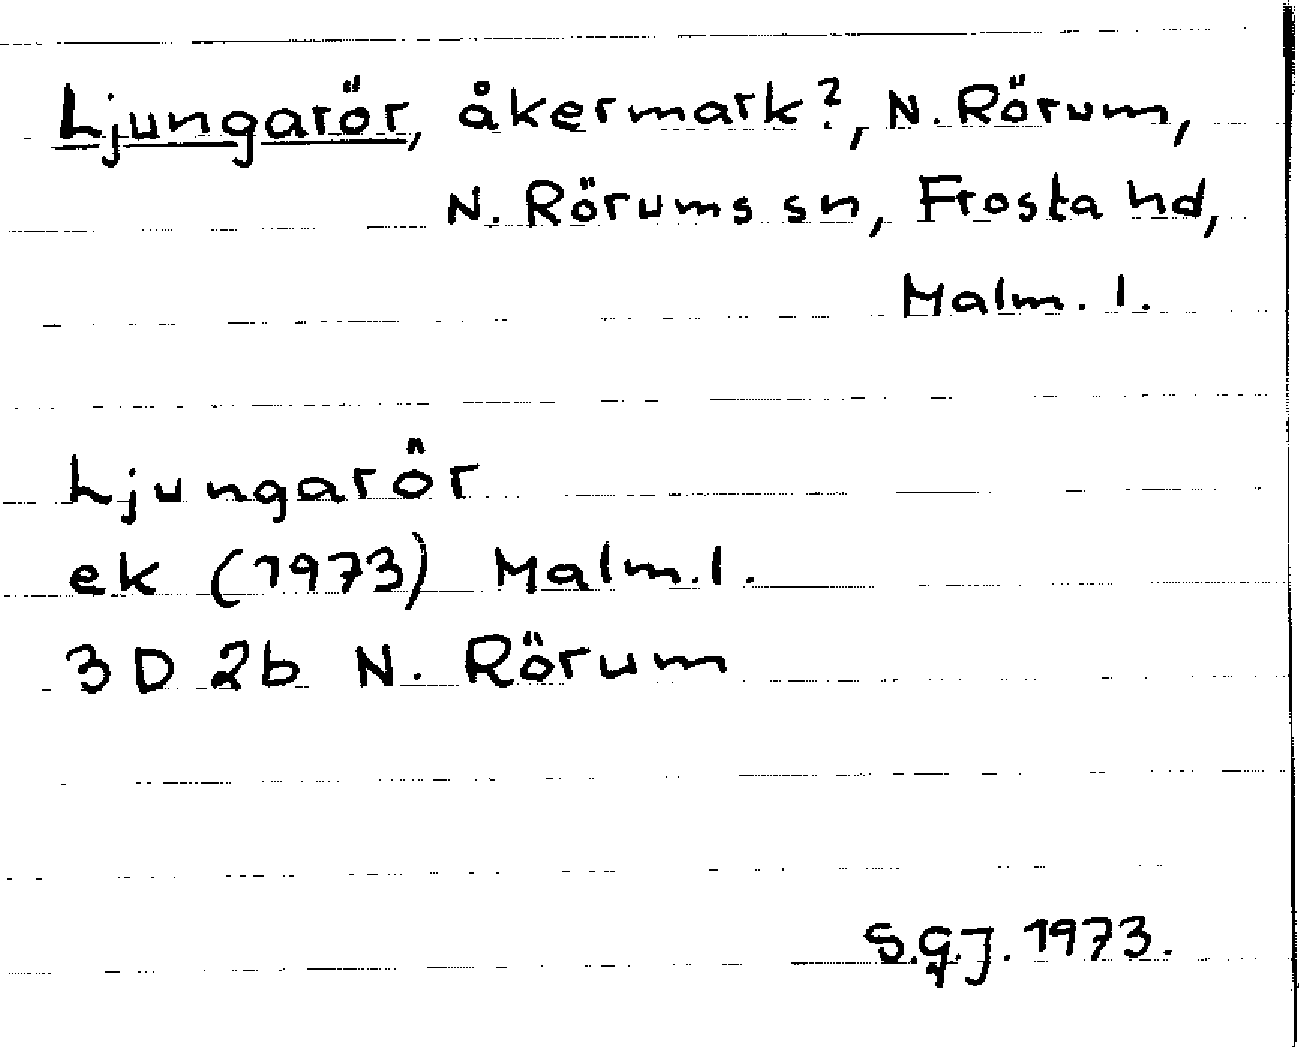 Ljungarör, åkermark?, N. Rörum,
N. Rörums sn, Frosta hd,
Malm. l.
Ljungarör
ek (1973) Malm. l.
3D 2b N. Rörum
S.G.J. 1973.